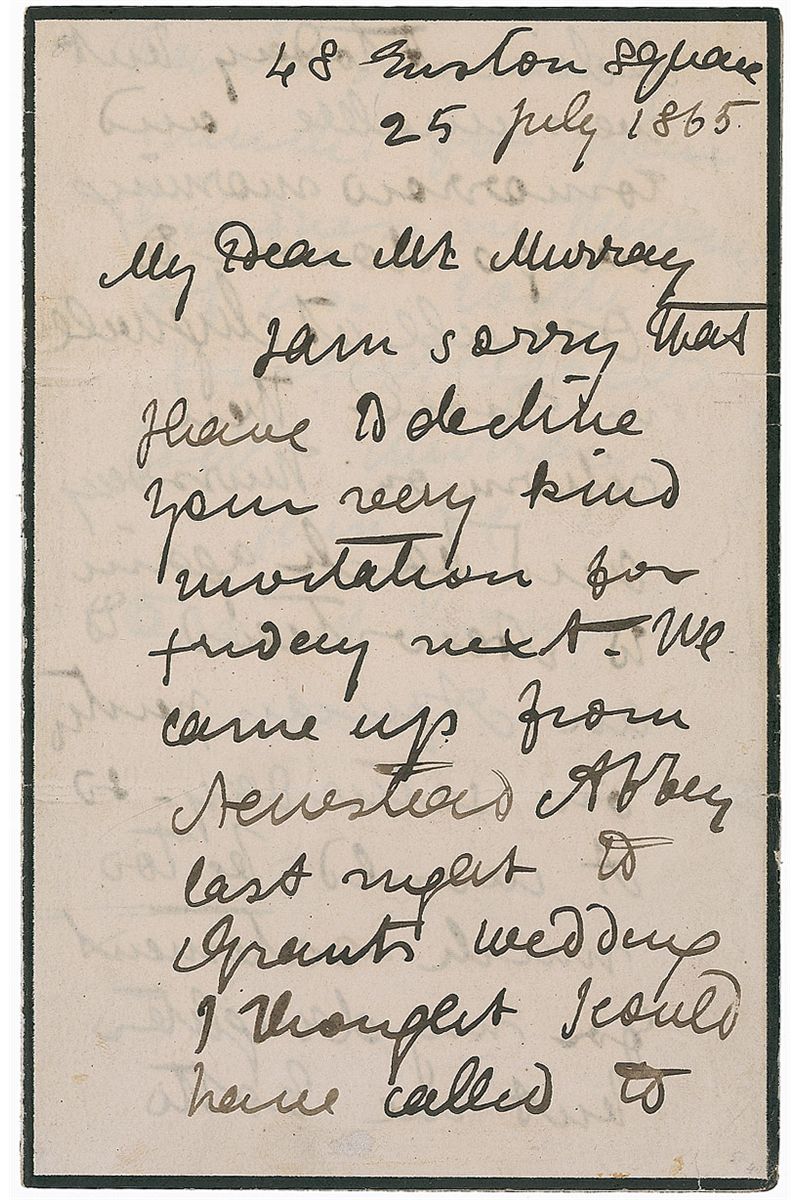 48 Euston Square
25 July 1865
My Dear Mr Murray
I am sorry that
I have to decline
your very kind
invitation for
friday next - We
came up from
Newstead Abbey
last night to
Grants wedding
I thought I could
have called to